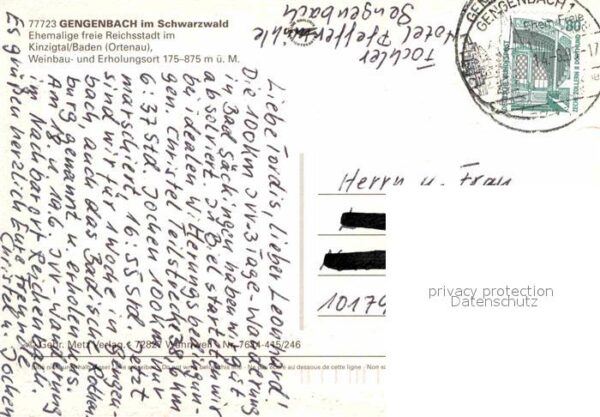 77723 GENGENBACH im Schwarzwald
Ehemalige freie Reichsstadt im
Kinzigtal/Baden (Ortenau),
Weinbau- und Erholungsort 175–875 m ü. M.
Fochler
Hotel Pfeffermühle
Gengenbach
GENGENBACH 1
80
Liebe Tordis, lieber Leonhard
Die 100km IVV-3Tage-Wanderung
in Bad Säckingen haben wir gut
absolviert. In Biel starteten wir
bei idealen Witterungsbedingun-
gen. Christel Teilstrecken in
6:37 Std. Jochen 100km
marschiert 16:55 Std. Jetzt
sind wir für 1 Woche in Gengen-
bach, auch das Badische Rothen-
burg genannt u. erholen uns.
Am 18. u. 19.6. IVV-Wanderung
im Nachbarort Reichenbach.
Es grüßen herzlich Eure Freunde
Christel u. Jochen
Herrn u. Frau
10179
privacy protection
Datenschutz
Gebr. Metz Verlag · 72827 Wannweil · Nr. 7634-415/246